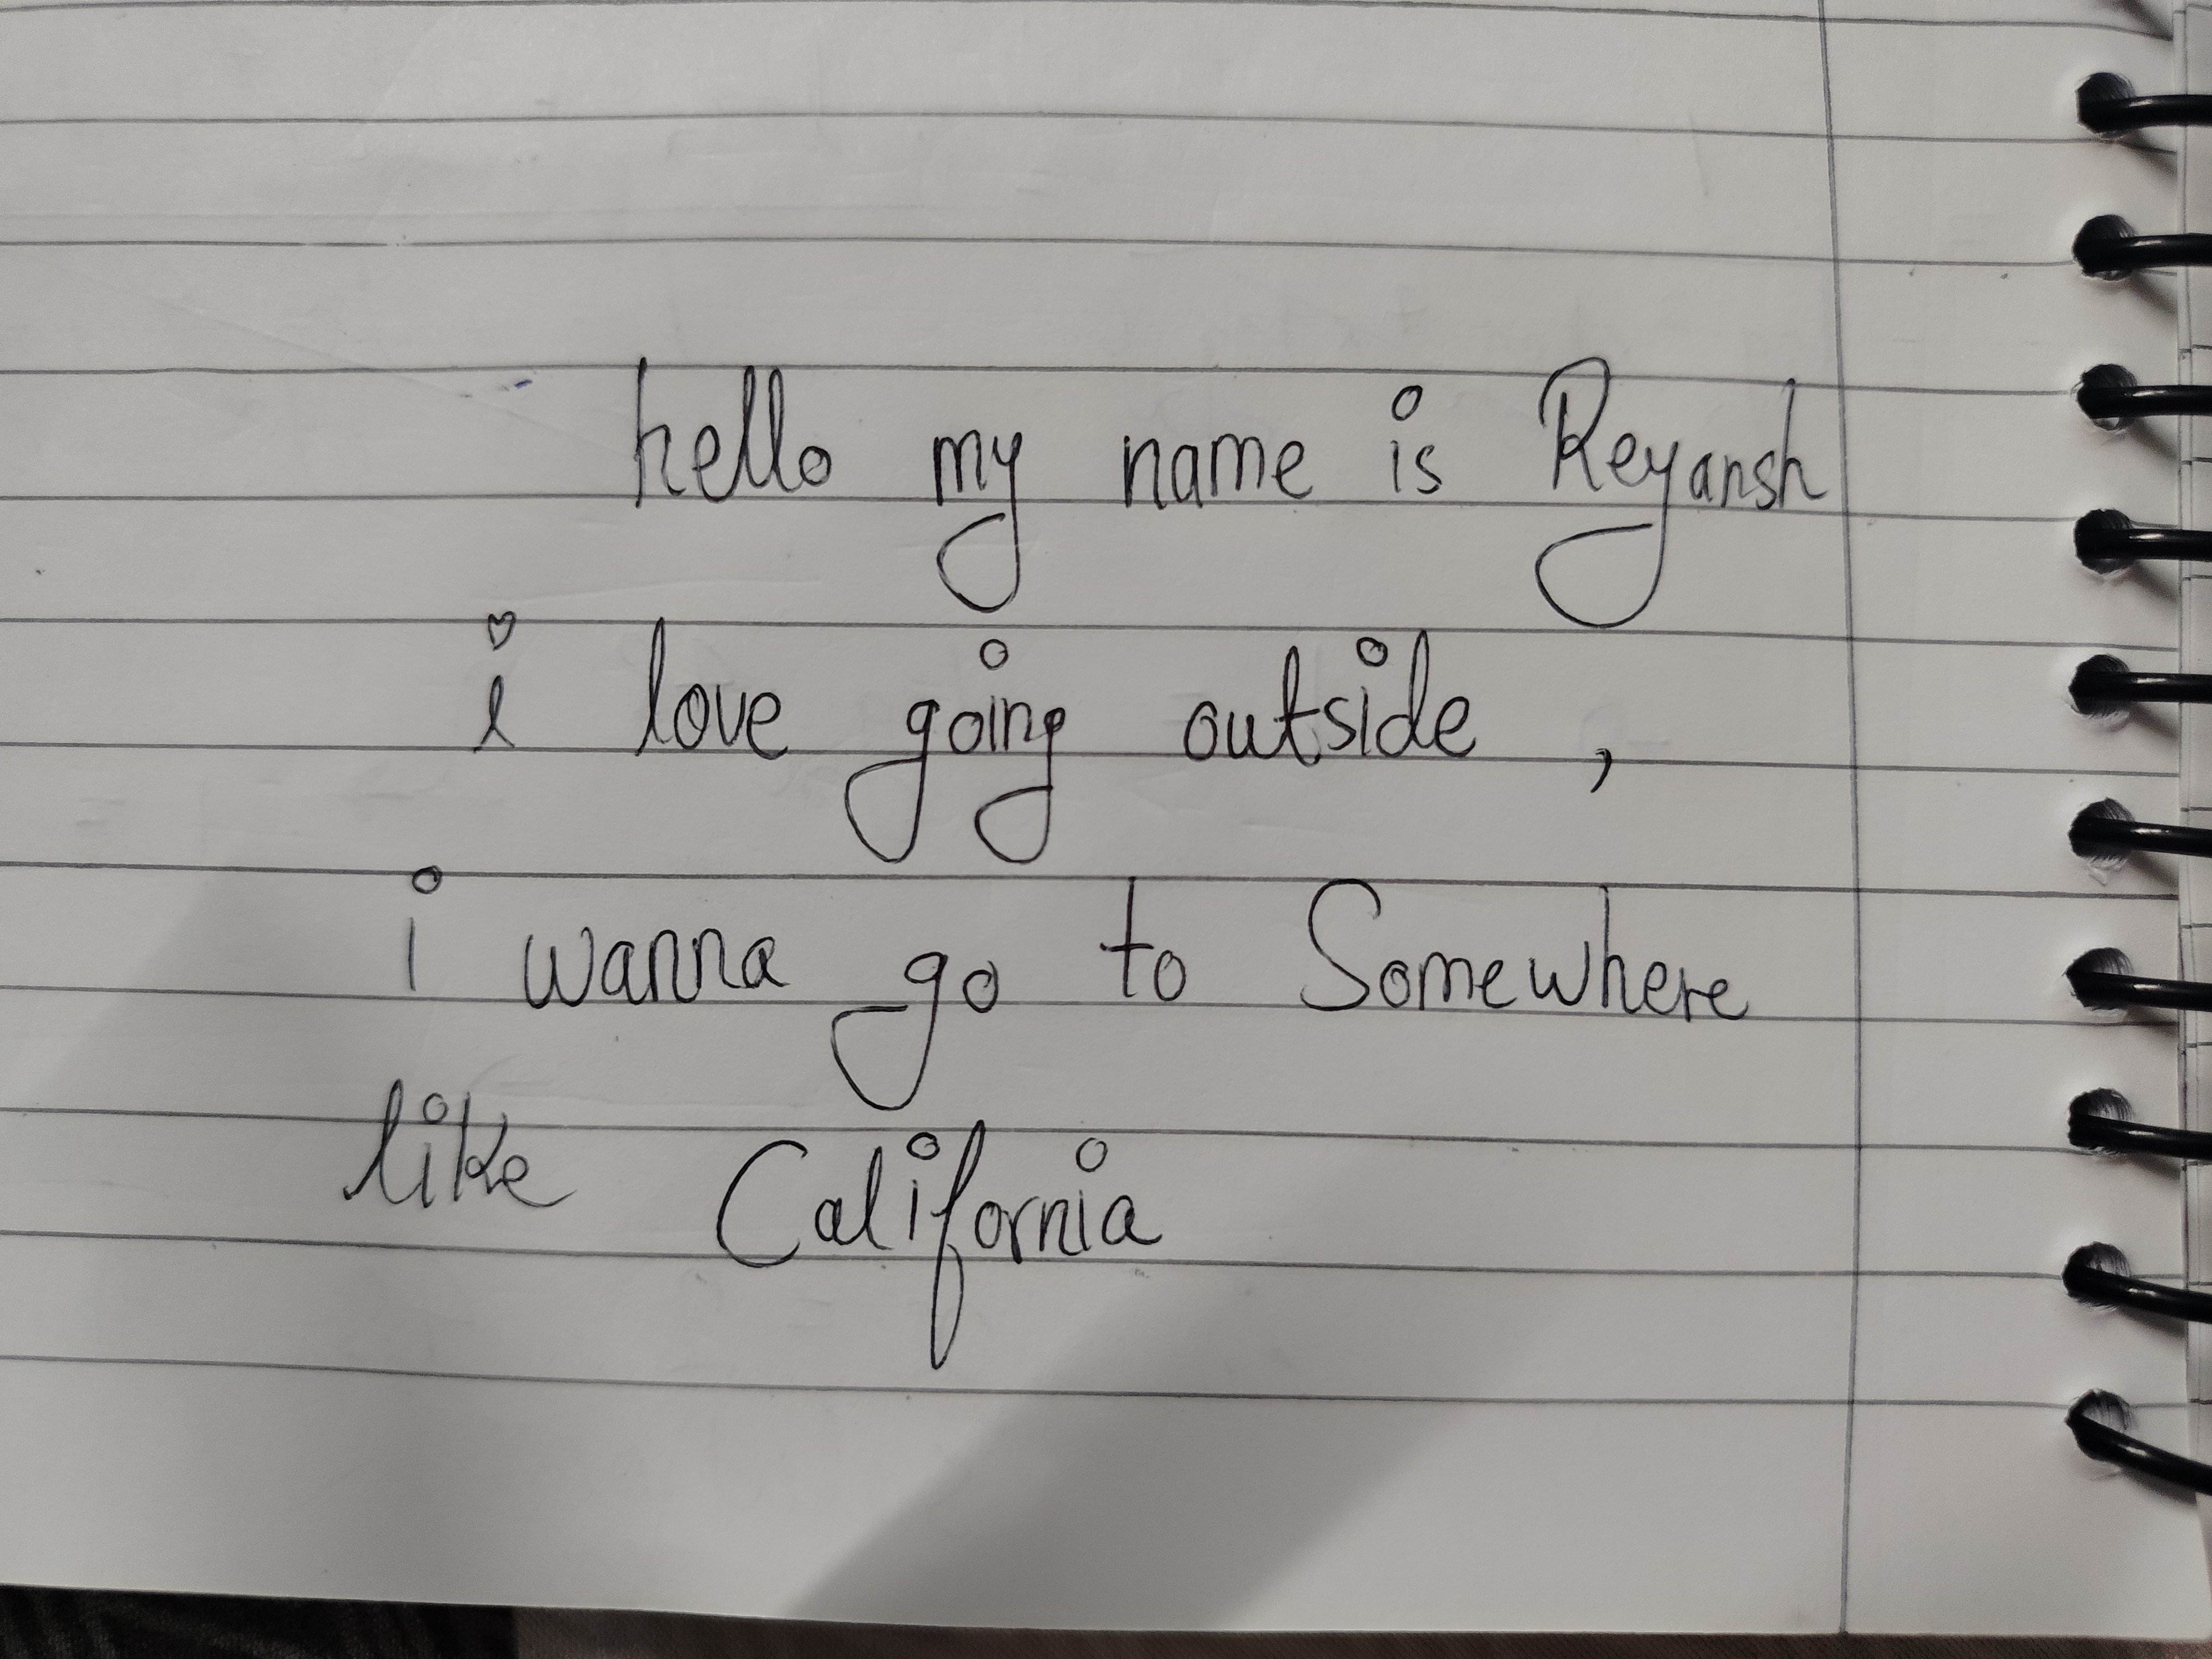 hello my name is Reyansh
i love going outside ,
i wanna go to Somewhere
like California